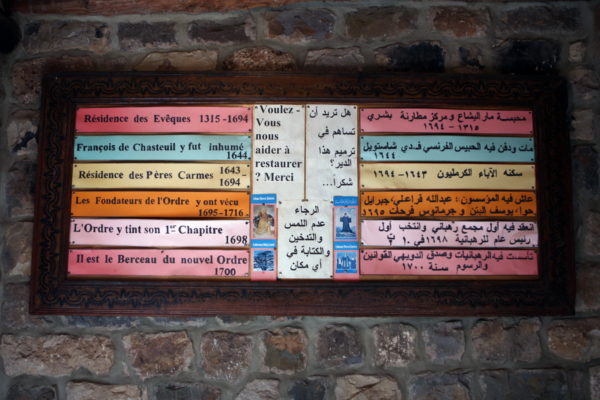 Résidence des Evêques 1315-1694
François de Chasteuil y fut inhumé
1644
Résidence des Pères Carmes 1643-
1694
Les Fondateurs de l'Ordre y ont vécu
1695-1716
L'Ordre y tint son 1er Chapitre
1698
Il est le Berceau du nouvel Ordre
1700
Voulez-
Vous
nous
aider à
restaurer
? Merci
هل تريد أن
تساهم في
ترميم هذا
الدير؟
شكراً...
الرجاء
عدم اللمس
والتدخين
والكتابة في
أي مكان
محبسة مار اليشاع ومركز مطارنة بشري
١٣١٥ - ١٦٩٤
مات ودفن فيه الحبيس الفرنسي ف.دي شاستويل
١٦٤٤
سكنه الآباء الكرمليون ١٦٤٣-١٦٩٤
عاش فيه المؤسسون: عبدالله قراعلي، جبرايل
حوا، يوسف البتن و جرمانوس فرحات ١٦٩٥
انعقد فيه أول مجمع رهباني وانتخب أول
رئيس عام للرهبانية ١٦٩٨ في ١٠
تأسست فيه الرهبانيات وصدق الدويهي القوانين
والرسوم سنة ١٧٠٠